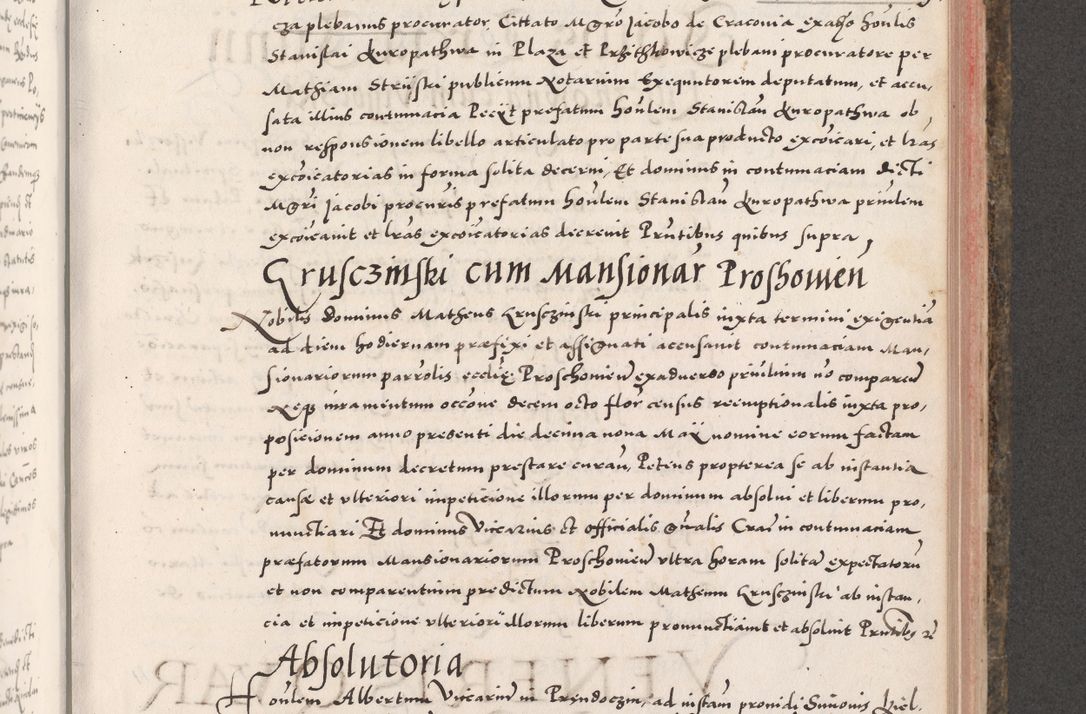 cza plebanus procurator Cittato Mgro Jacobo de Cracovia ex adso houlis
Stanislai Kuropathwa in Plaza et Przithkowicze plebani procuratore per
Mathiam Strÿski publicum Notarium Exequutorem deputatum, et accu,
sata illius contumacia Pecÿt prefatum houlem Stanislau Kuropathwa ob
non responsionem libello articulato pro parte sua producto excoicari, et lras
excoicatorias in forma solita decerni, Et dominus in contumaciam dicti
Mgri Jacobi procuris prefatum houlem Stanislau Kuropathwa priulem
excoicauit et lras excoicatorias decreuit Prntibus quibus supra
Crusczinski cum Mansionar Proshouien
Nobilis dominus Matheus Krusczinski principalis iuxta termini exigentia
ad diem hodiernam præfixi et assignati accusauit contumaciam Man,
sionariorum parrolis ecclie Proschouien ex aduerso priulium no comparen
Neq iuramentum occone decem octo flor census reemptionalis iuxta pro,
posicionem anno presenti die decima nona Maÿ nomine eorum factam
per dominum decretum prestare curau, Petens propterea se ab instantia
causæ et vlteriori impeticione illorum per dominum absolui et liberum pro,
nunctiari Et dominus Vicarius et officialis gnalis Crac in contumaciam
præfatorum Mansionariorum Proschouien vltra horam solita expectatoru
et non comparentium predictum Nobilem Matheum Krusczinski ab instan,
cia et impeticione vlteriori illorum liberum pronunctiauit et absoluit Prntibus
Absolutoria
Houlem Albertum Vicariu in Prÿndoczin, ad instam prouidi Simonis